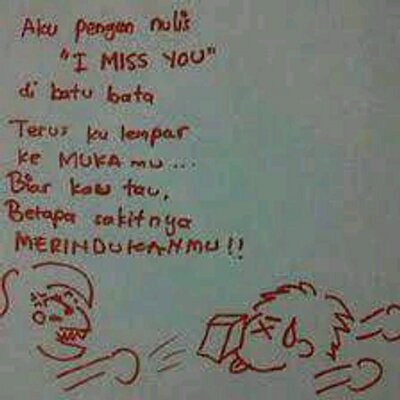 Aku pengen nulis
"I MISS YOU"
di batu bata
Terus ku lempar
ke MUKA mu ...
Biar kau tau,
Betapa sakitnya
MERINDUKANMU!!